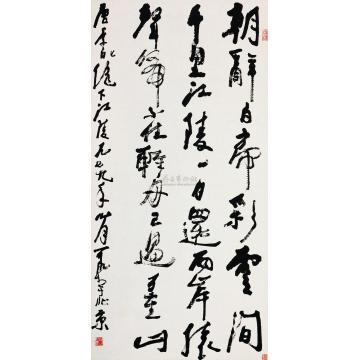 朝辭白帝彩雲間
千里江陵一日還兩岸猿
聲啼不住輕舟已過萬重山
唐李白 下江陵 九七九年 月 京